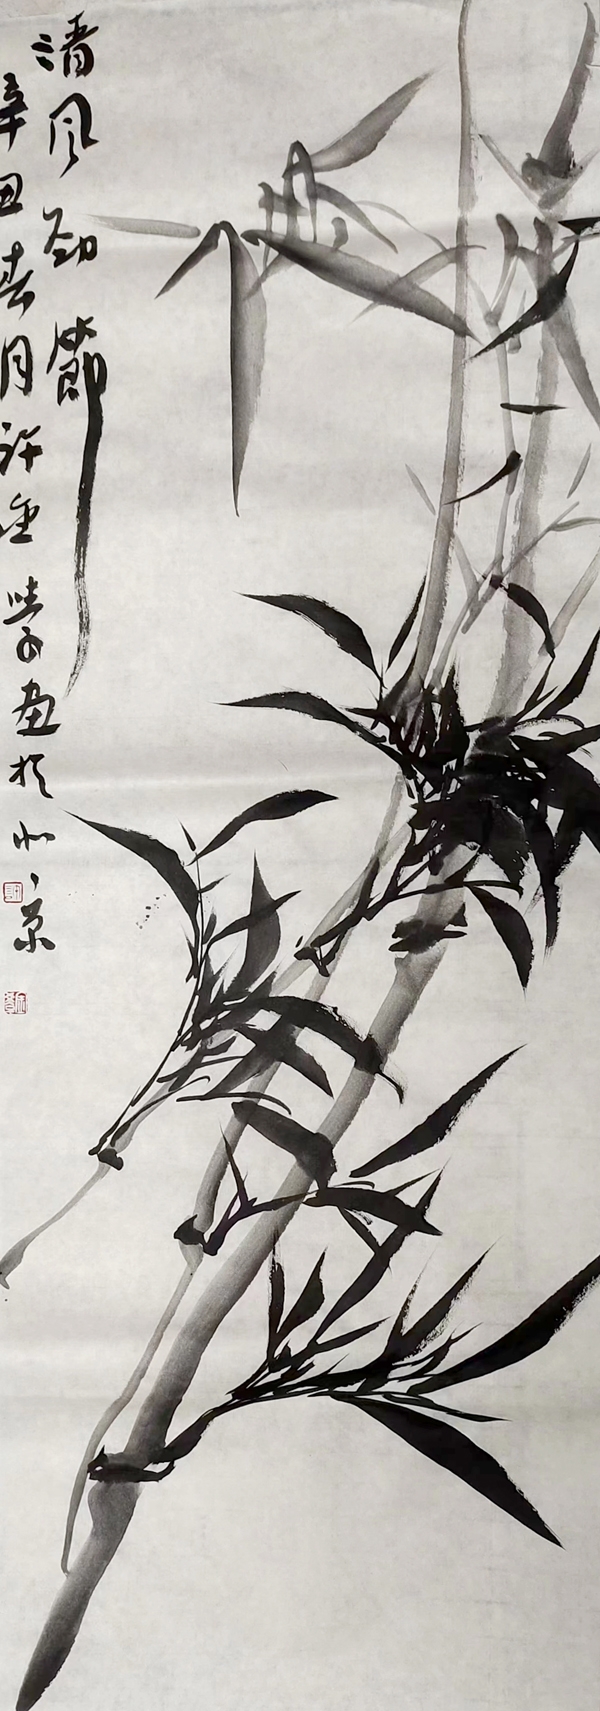 清风劲节
辛丑春月许金学画于北京